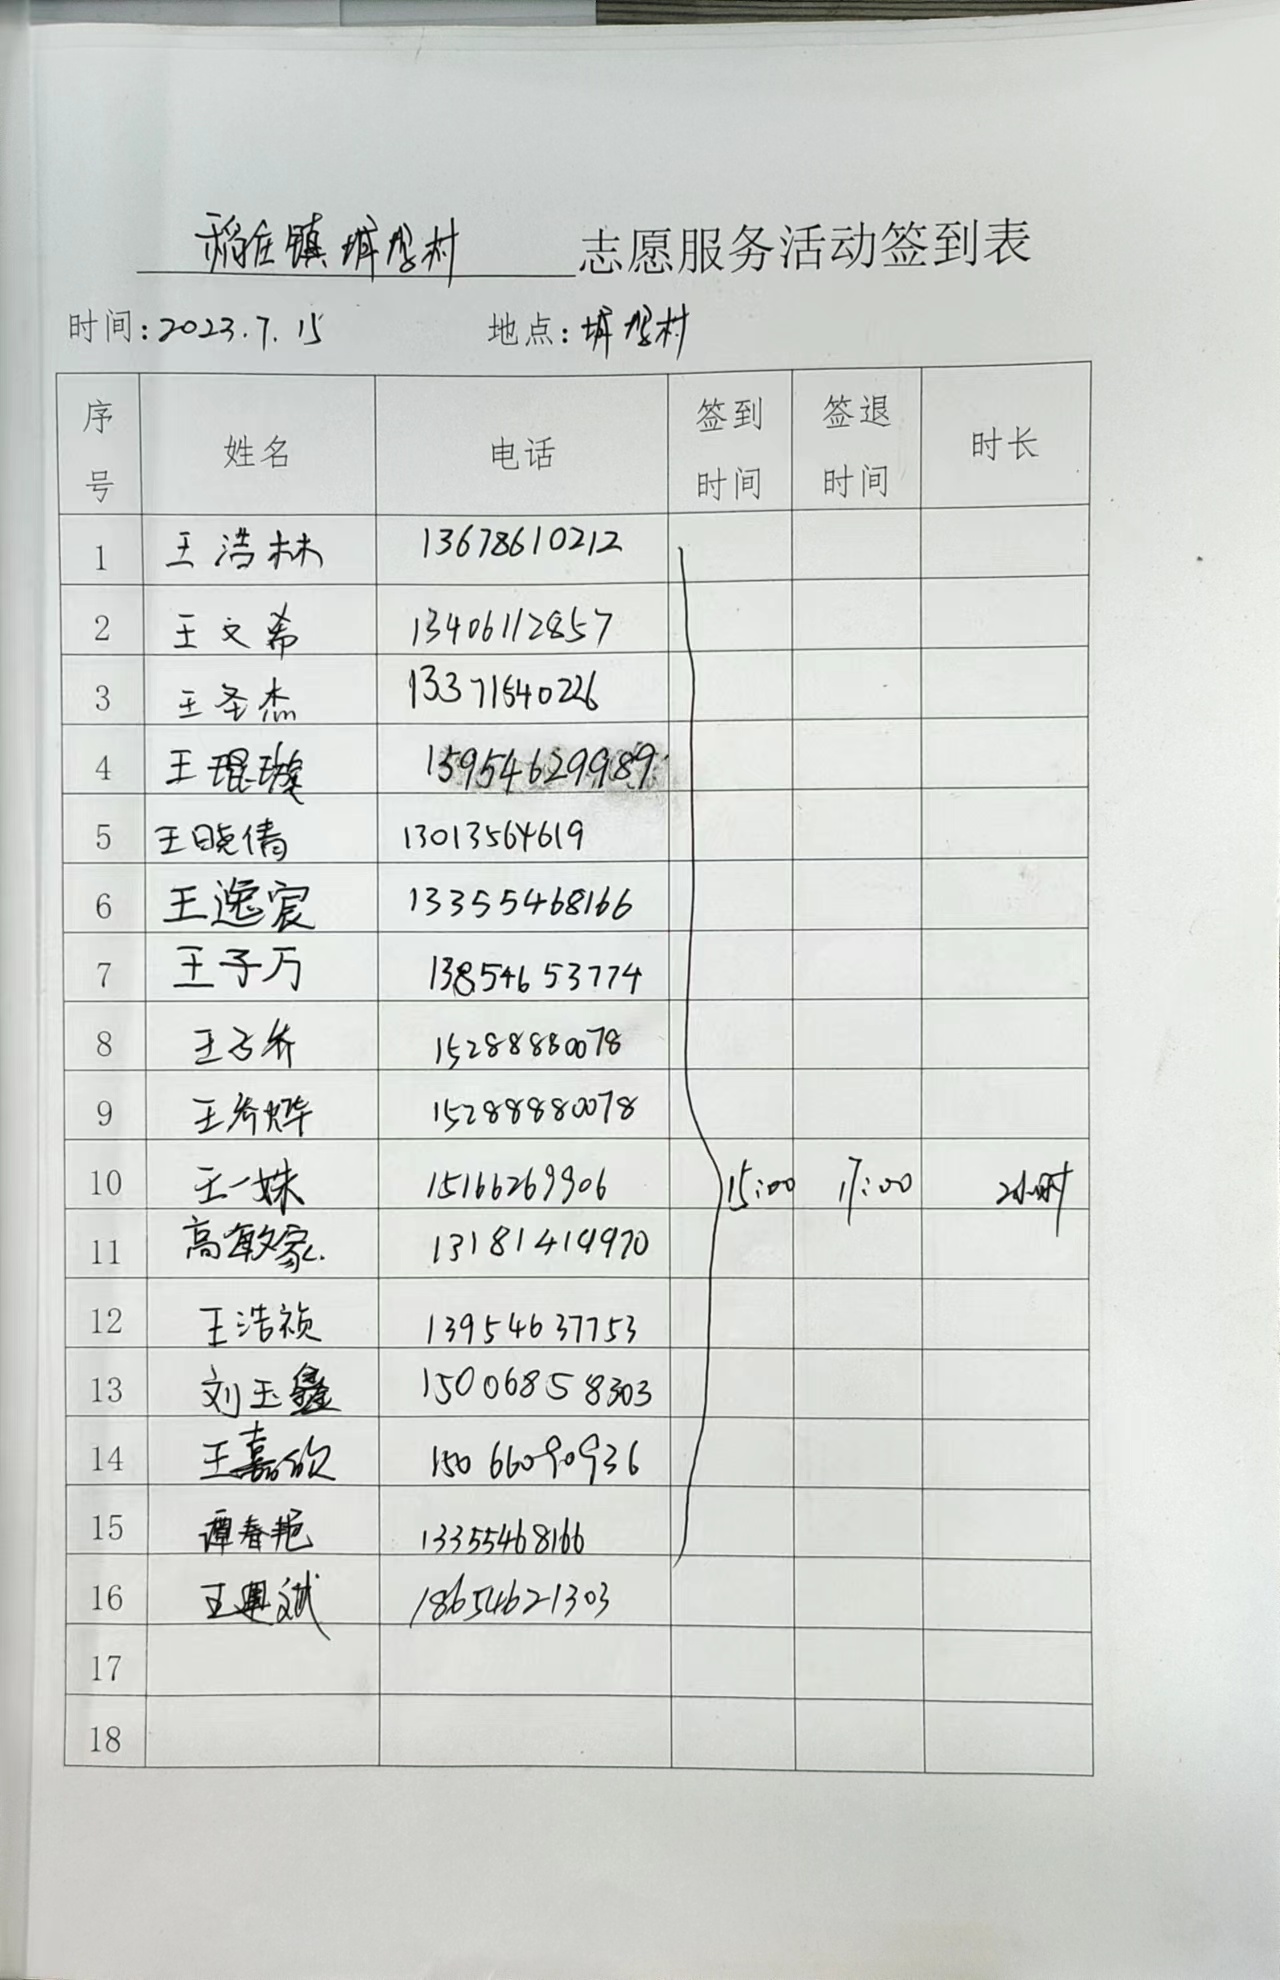 稻庄镇 村 志愿服务活动签到表
时间:2023.7.15 地点: 村
序号 姓名 电话 签到时间 签退时间 时长
1 王浩林 13678610212
2 王文希 13406112857
3 王圣杰 13371540226
4 王琨璇 15954629989
5 王晓倩 13013564619
6 王逸宸 13355468166
7 王子万 13854653774
8 王子乔 15288880078
9 王乔烨 15288880078
10 王一姝 15166269906 15:00 17:00 2小时
11 高敏家 13181414970
12 王浩祯 13954637753
13 刘玉鑫 15006858303
14 王嘉欣 15066090936
15 谭春艳 13355468166
16 王 斌 18654621303
17
18